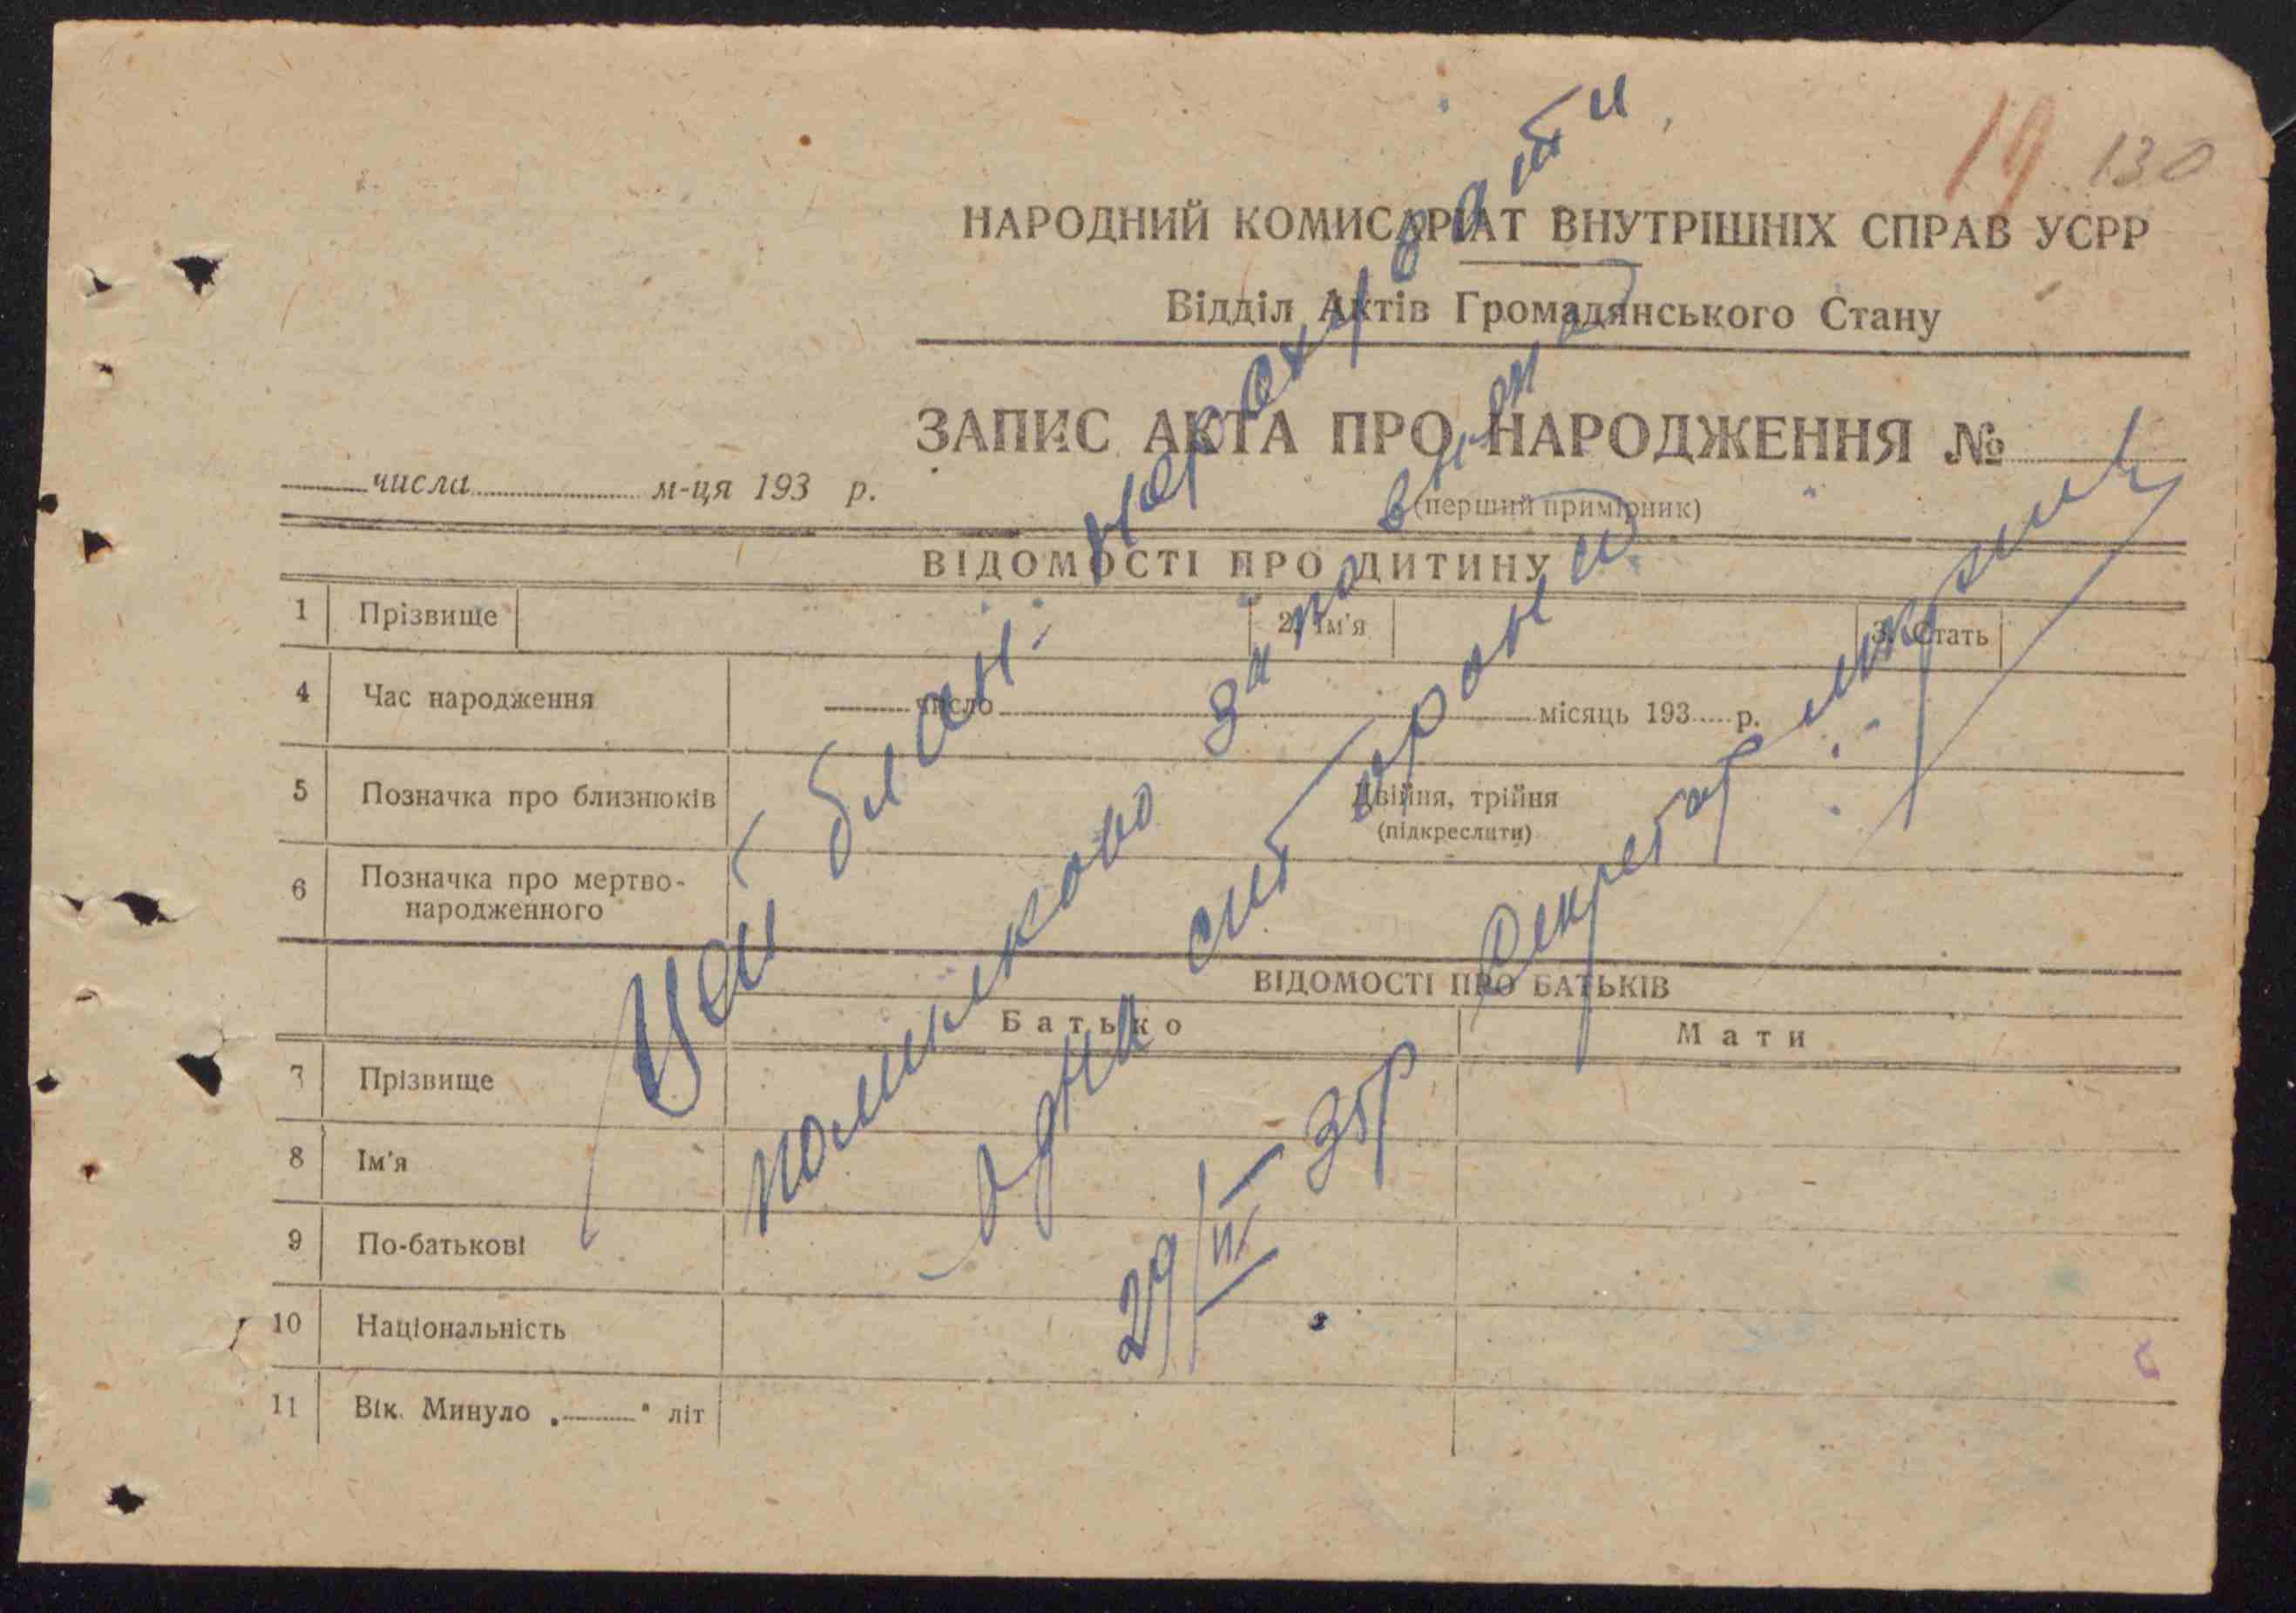 19 130
НАРОДНИЙ КОМИСАРІАТ ВНУТРІШНІХ СПРАВ УСРР
Відділ Актів Громадянського Стану
ЗАПИС АКТА ПРО НАРОДЖЕННЯ №
числа м-ця 193 р.
(перший примірник)
ВІДОМОСТІ ПРО ДИТИНУ
1 Прізвище 2. Ім'я 3. Стать
4 Час народження число місяць 193 р.
5 Позначка про близнюків Двійня, трійня
(підкреслити)
6 Позначка про мертво-
народженного
ВІДОМОСТІ ПРО БАТЬКІВ
Батько Мати
7 Прізвище
8 Ім'я
9 По-батькові
10 Національність
11 Вік. Минуло „ " літ
Цей блан.
помилково заповнено
одни
Секретар
29/II 35р